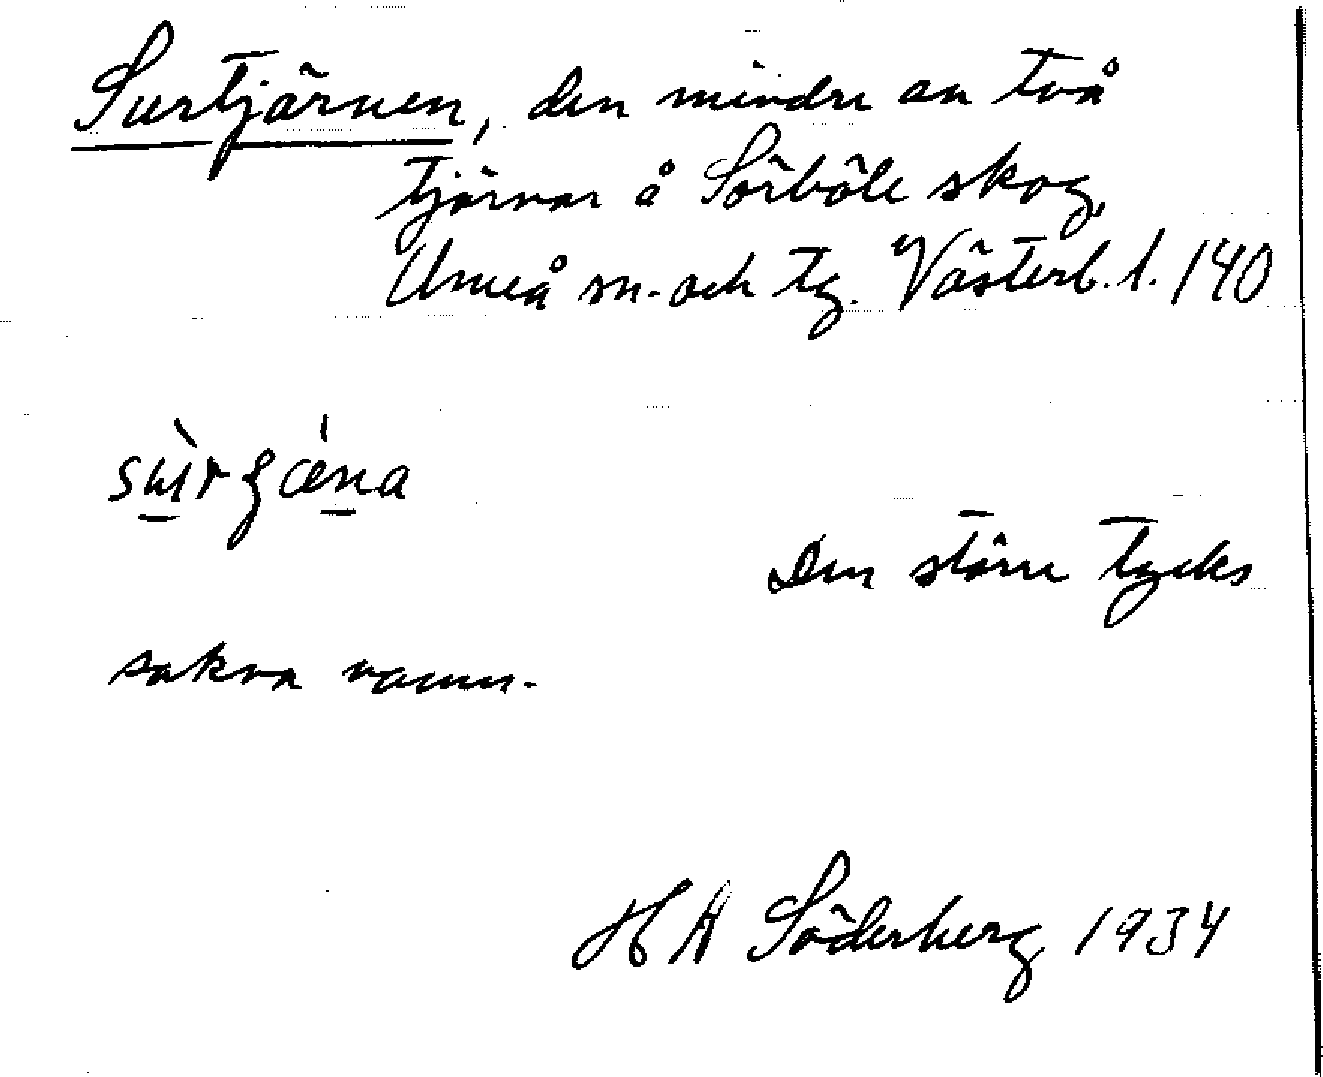 Surtjärnen, den mindre av två
tjärnar å Sörböle skog,
Umeå sn. och tg. Västerb. l. 140
Den större tycks
sakna namn.
H A Söderberg 1934